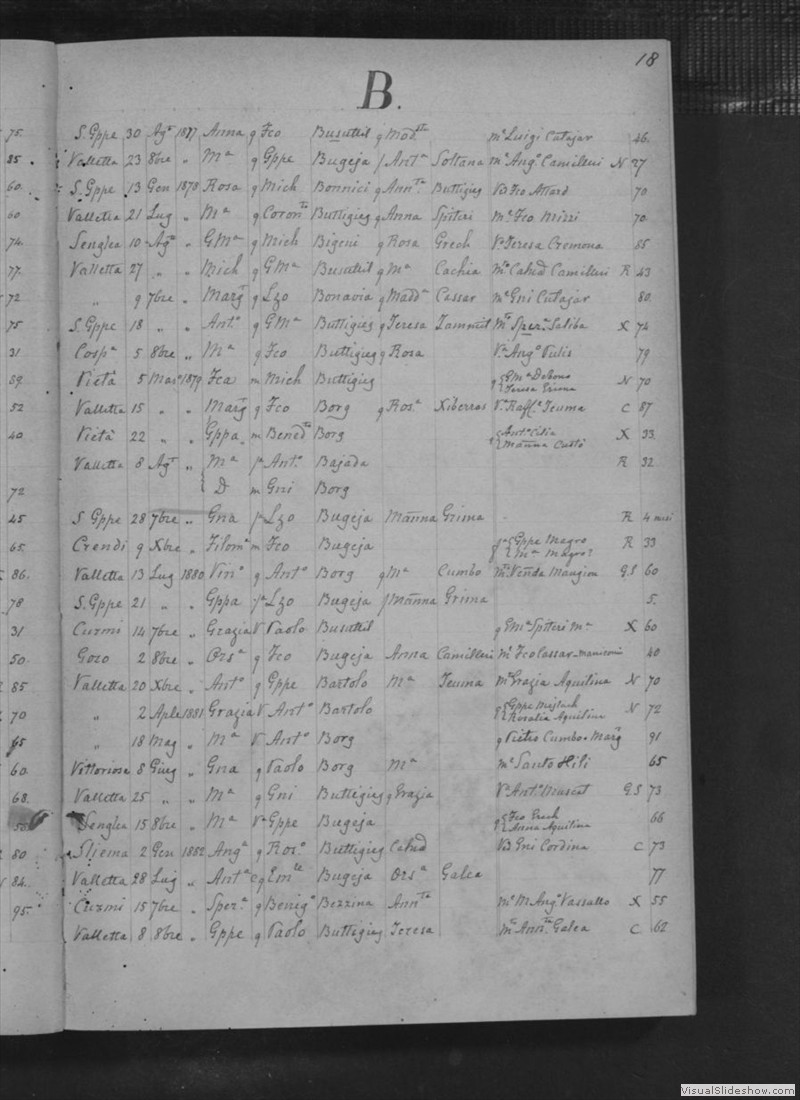 18
B.
75. S. Gppe 30 Agto 1877 Anna q Fco Busuttil q Modta mo Luigi Cutajar 46.
85 Valletta 23 8bre " Ma q Gppe Bugeja f Anta Soltana mo Ango Camilleri N 27
60. S. Gppe 13 Gen 1878 Rosa q Mich Bonnici q Annta Buttigieg Va Fco Attard 70
60 Valletta 21 Lug " Ma q Coronto Buttigieg q Anna Spiteri mo Fco Mizzi 70.
74. Senglea 10 Agto " GMa q Mich Bigeni q Rosa Grech Va Teresa Cremona 85
77. Valletta 27 " " Mich q GMa Busuttil q Ma Cachia Mta Catud Camilleri R 43
72 " 9 7bre " Marg q Lzo Bonavia q Madda Cassar mo Gni Cutajar 80.
75 S. Gppe 18 " " Anto q GMa Buttigieg q Teresa Zammit Mta Spera Saliba X 74
31 Cospa 5 8bre " Ma q Fco Buttigieg q Rosa Va Ango Vulis 79
39. Vieta 5 Mar 1879 Fca m Mich Buttigieg q GMa DeBono Teresa Grima N 70
52 Valletta 15 " " Marg q Fco Borg q Rosa Xiberras Va Raffla Teuma C 87
40 Vieta 22 " " Gppa m Benedto Borg q Anto Cilia Manna Custò X 33
Valletta 8 Agt " Ma f Anto Bajada R 32
72 D m Gni Borg
45 S Gppe 28 7bre " Gna f Lzo Bugeja Manna Grima R 4 mesi
65. Crendi 9 Xbre " Filoma m Fco Bugeja Gppe Magro Ma Magro R 33
86. Valletta 13 Lug 1880 Vino q Anto Borg q Ma Cumbo Mta Venda Mangion G.S 60
78 S. Gppe 21 " " Gppa f Lzo Bugeja f Manna Grima 5.
31 Curmi 14 7bre " Grazia V Paolo Busuttil q GMa Spiteri Ma X 60
50. Gozo 2 8bre " Orsa q Fco Bugeja Anna Camilleri Mo Fco Cassar 40
85 Valletta 20 Xbre " Anto q Gppe Bartolo Ma Teuma mo Grazia Aquilina N 70
70 " 2 Aple 1881 Grazia V Anto Bartolo q Gppe Mifsud Rosalia Aquilina N 72
65 " 18 Mag " Ma V Anto Borg q Pietro Cumbo Marg 91
60. Vittoriosa 8 Giug " Gna q Paolo Borg Ma mo Santo Hili 65
68. Valletta 25 " " Ma q Gni Buttigieg q Grazia Va Anto Muscat G.S 73
Senglea 15 8bre " Ma Va Gppe Bugeja q Fco Grech Anna Aquilina 66
80 Sliema 2 Gen 1882 Anga q Roso Buttigieg Catud Va Gni Cordina C 73
84. Valletta 28 Lug " Anta q Emle Bugeja Orsa Galea 77
95. Curmi 15 7bre " Spera q Benigo Bezzina Annta mo M Ango Vassallo X 55
Valletta 8 8bre " Gppe q Paolo Buttigieg Teresa Mta Annta Galea C. 62
VisualSlideshow.com